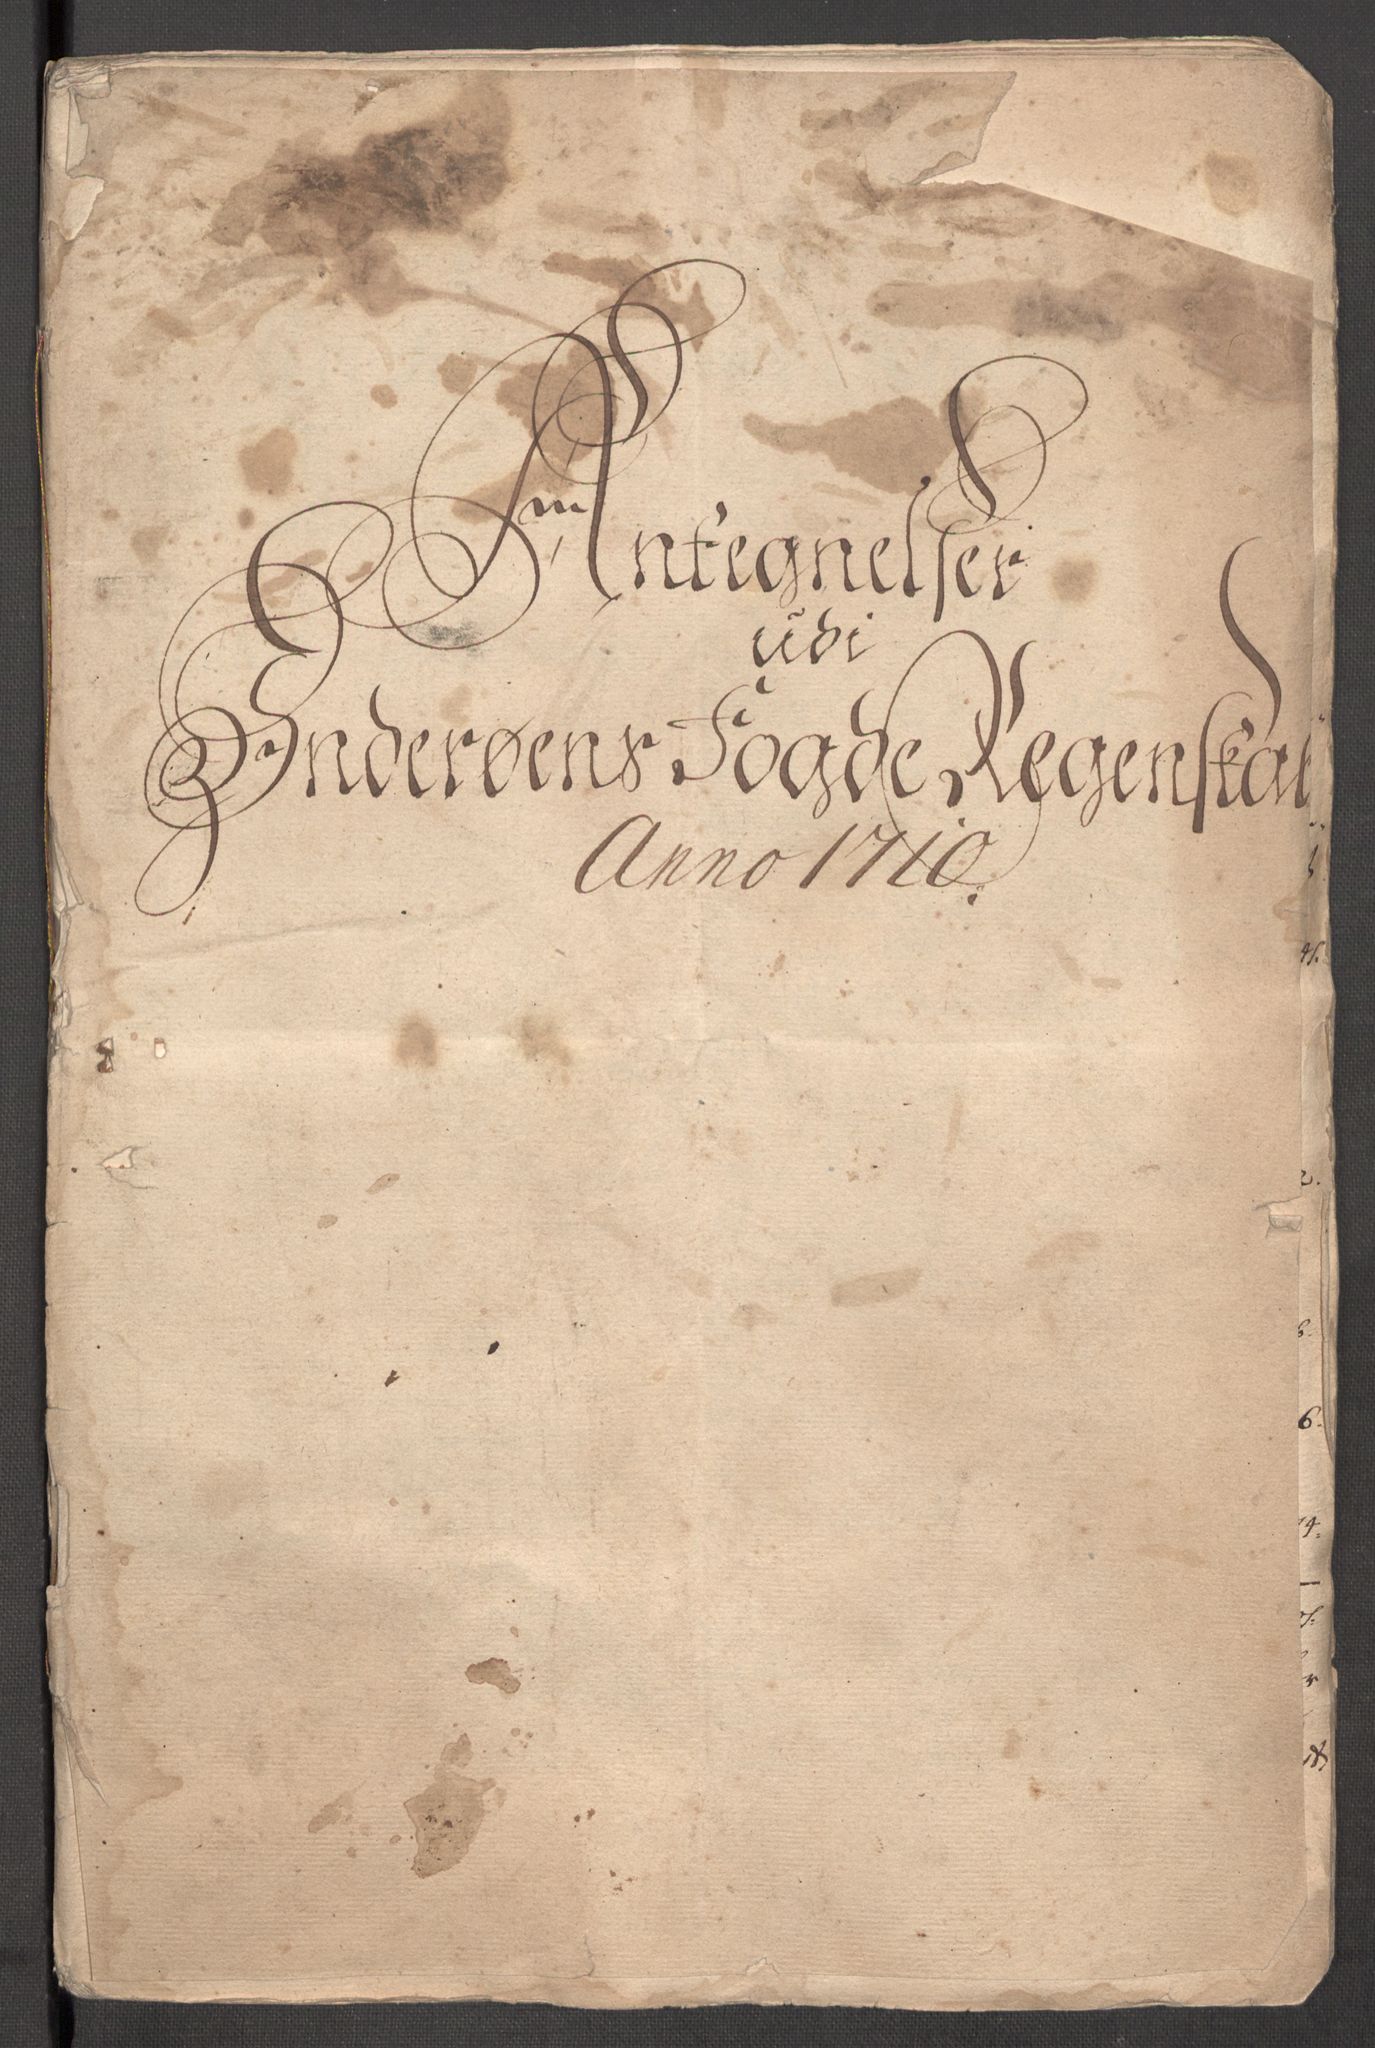 Antegnelser
udi
Inderøens Fogde Regenskab
Anno 1710.
45.
2.
6.
6.
14.